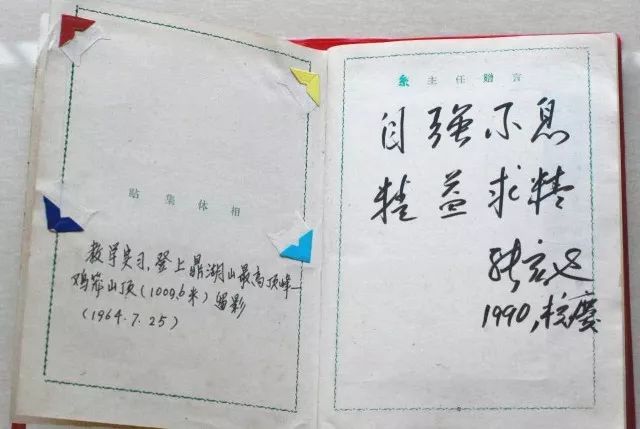 贴集体相
教学实习,登上鼎湖山最高顶峰—
鸡笼山顶(1000.6米)留影
(1964.7.25)
系主任赠言
自强不息
精益求精
张宏达
1990,校庆